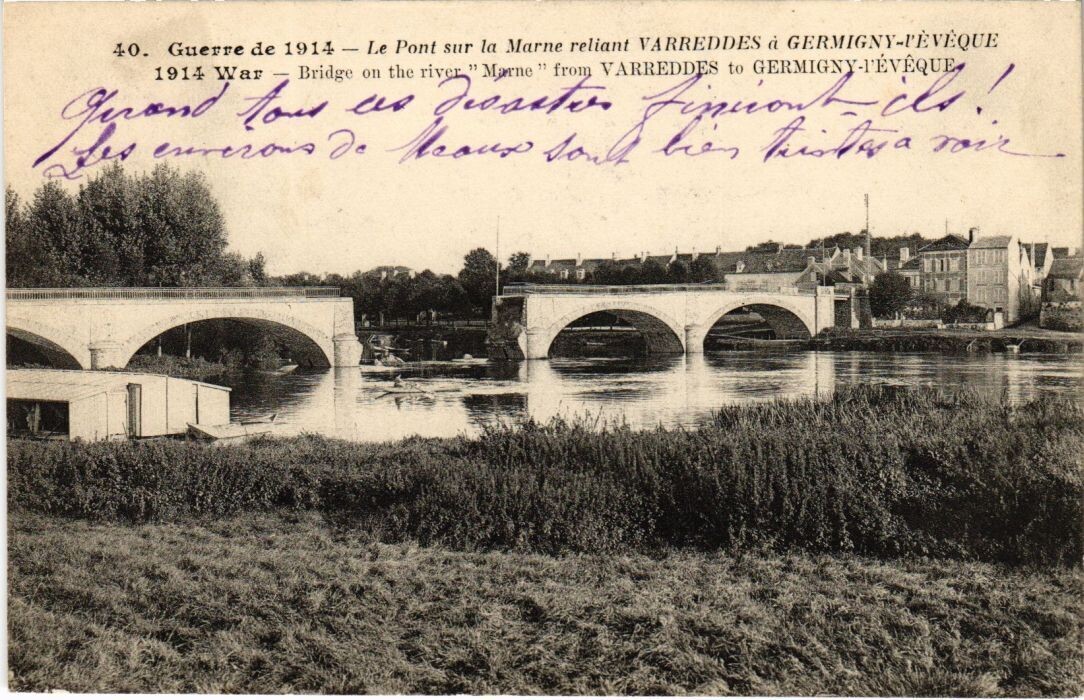 40. Guerre de 1914 — Le Pont sur la Marne reliant VARREDDES à GERMIGNY-l'ÉVÊQUE
1914 War — Bridge on the river "Marne" from VARREDDES to GERMIGNY-l'ÉVÊQUE
Quand tous ces désastres finiront-ils!
Les environs de Meaux sont bien tristes a voir